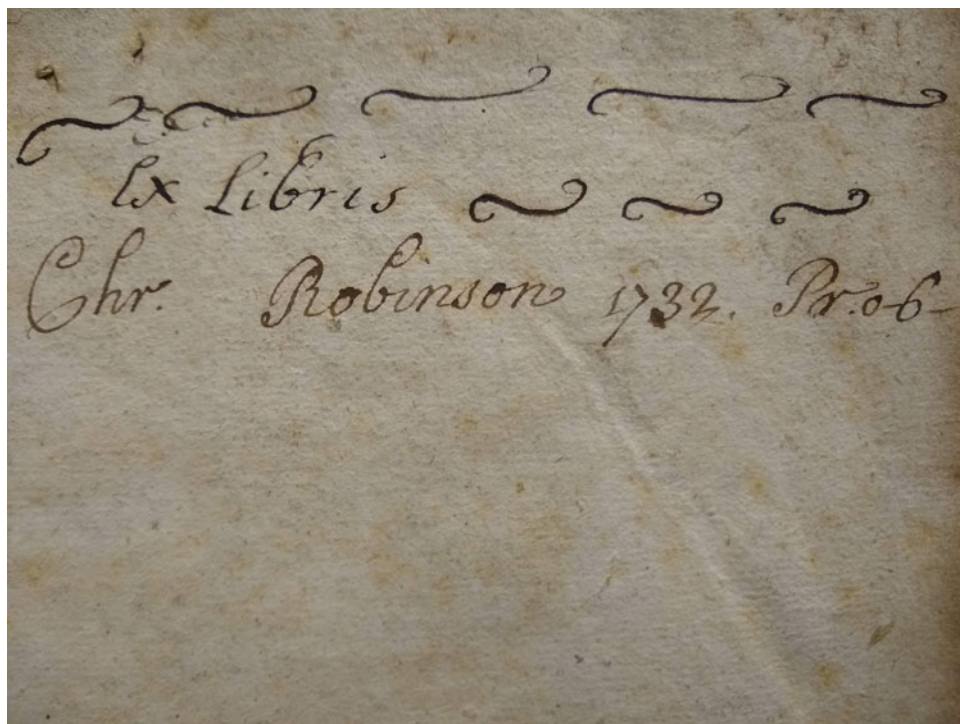 Ex Libris
Chr. Robinson 1732. Pr: 06-